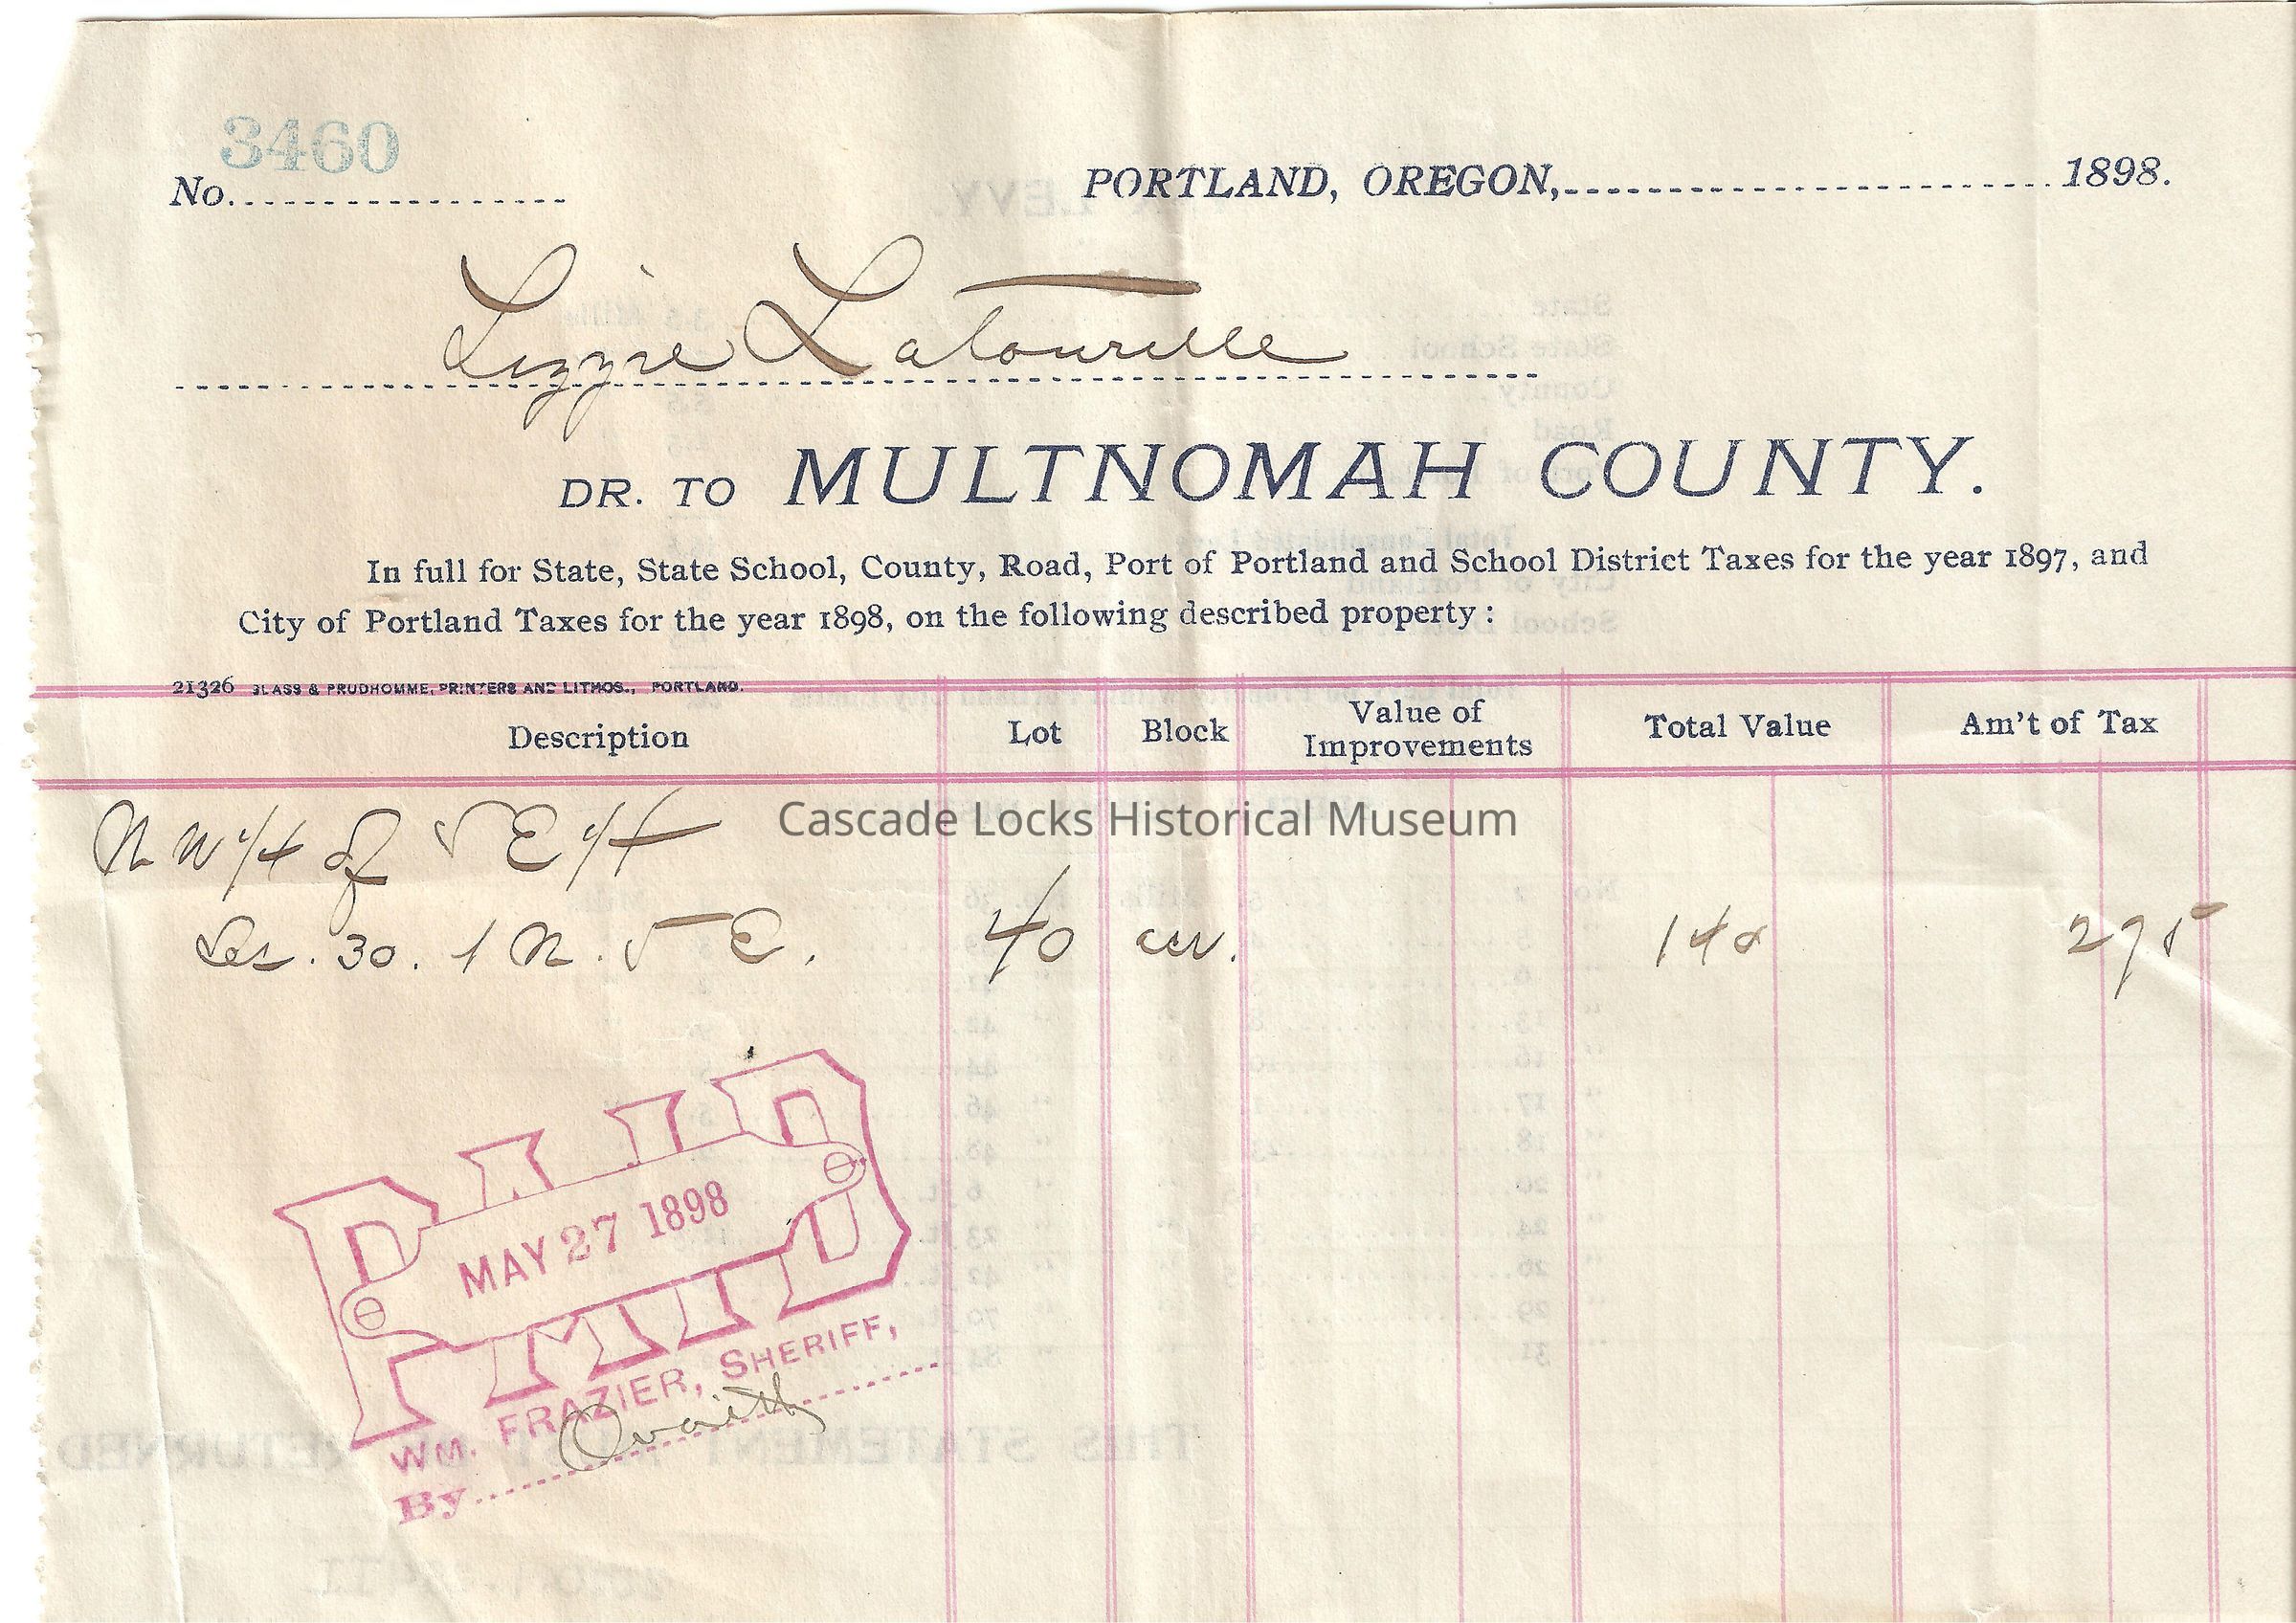 3460
No.
PORTLAND, OREGON, 1898.
Lizzie Latourelle
DR. TO MULTNOMAH COUNTY.
In full for State, State School, County, Road, Port of Portland and School District Taxes for the year 1897, and
City of Portland Taxes for the year 1898, on the following described property :
21326 GLASS & PRUDHOMME, PRINTERS AND LITHOS., PORTLAND.
Description Lot Block Value of Improvements Total Value Am't of Tax
Cascade Locks Historical Museum
N W 1/4 of S E 1/4
Sec. 30. 1 N. 5 E. 40 acr. 140 2 75
PAID
MAY 27 1898
WM. FRAZIER, SHERIFF,
By